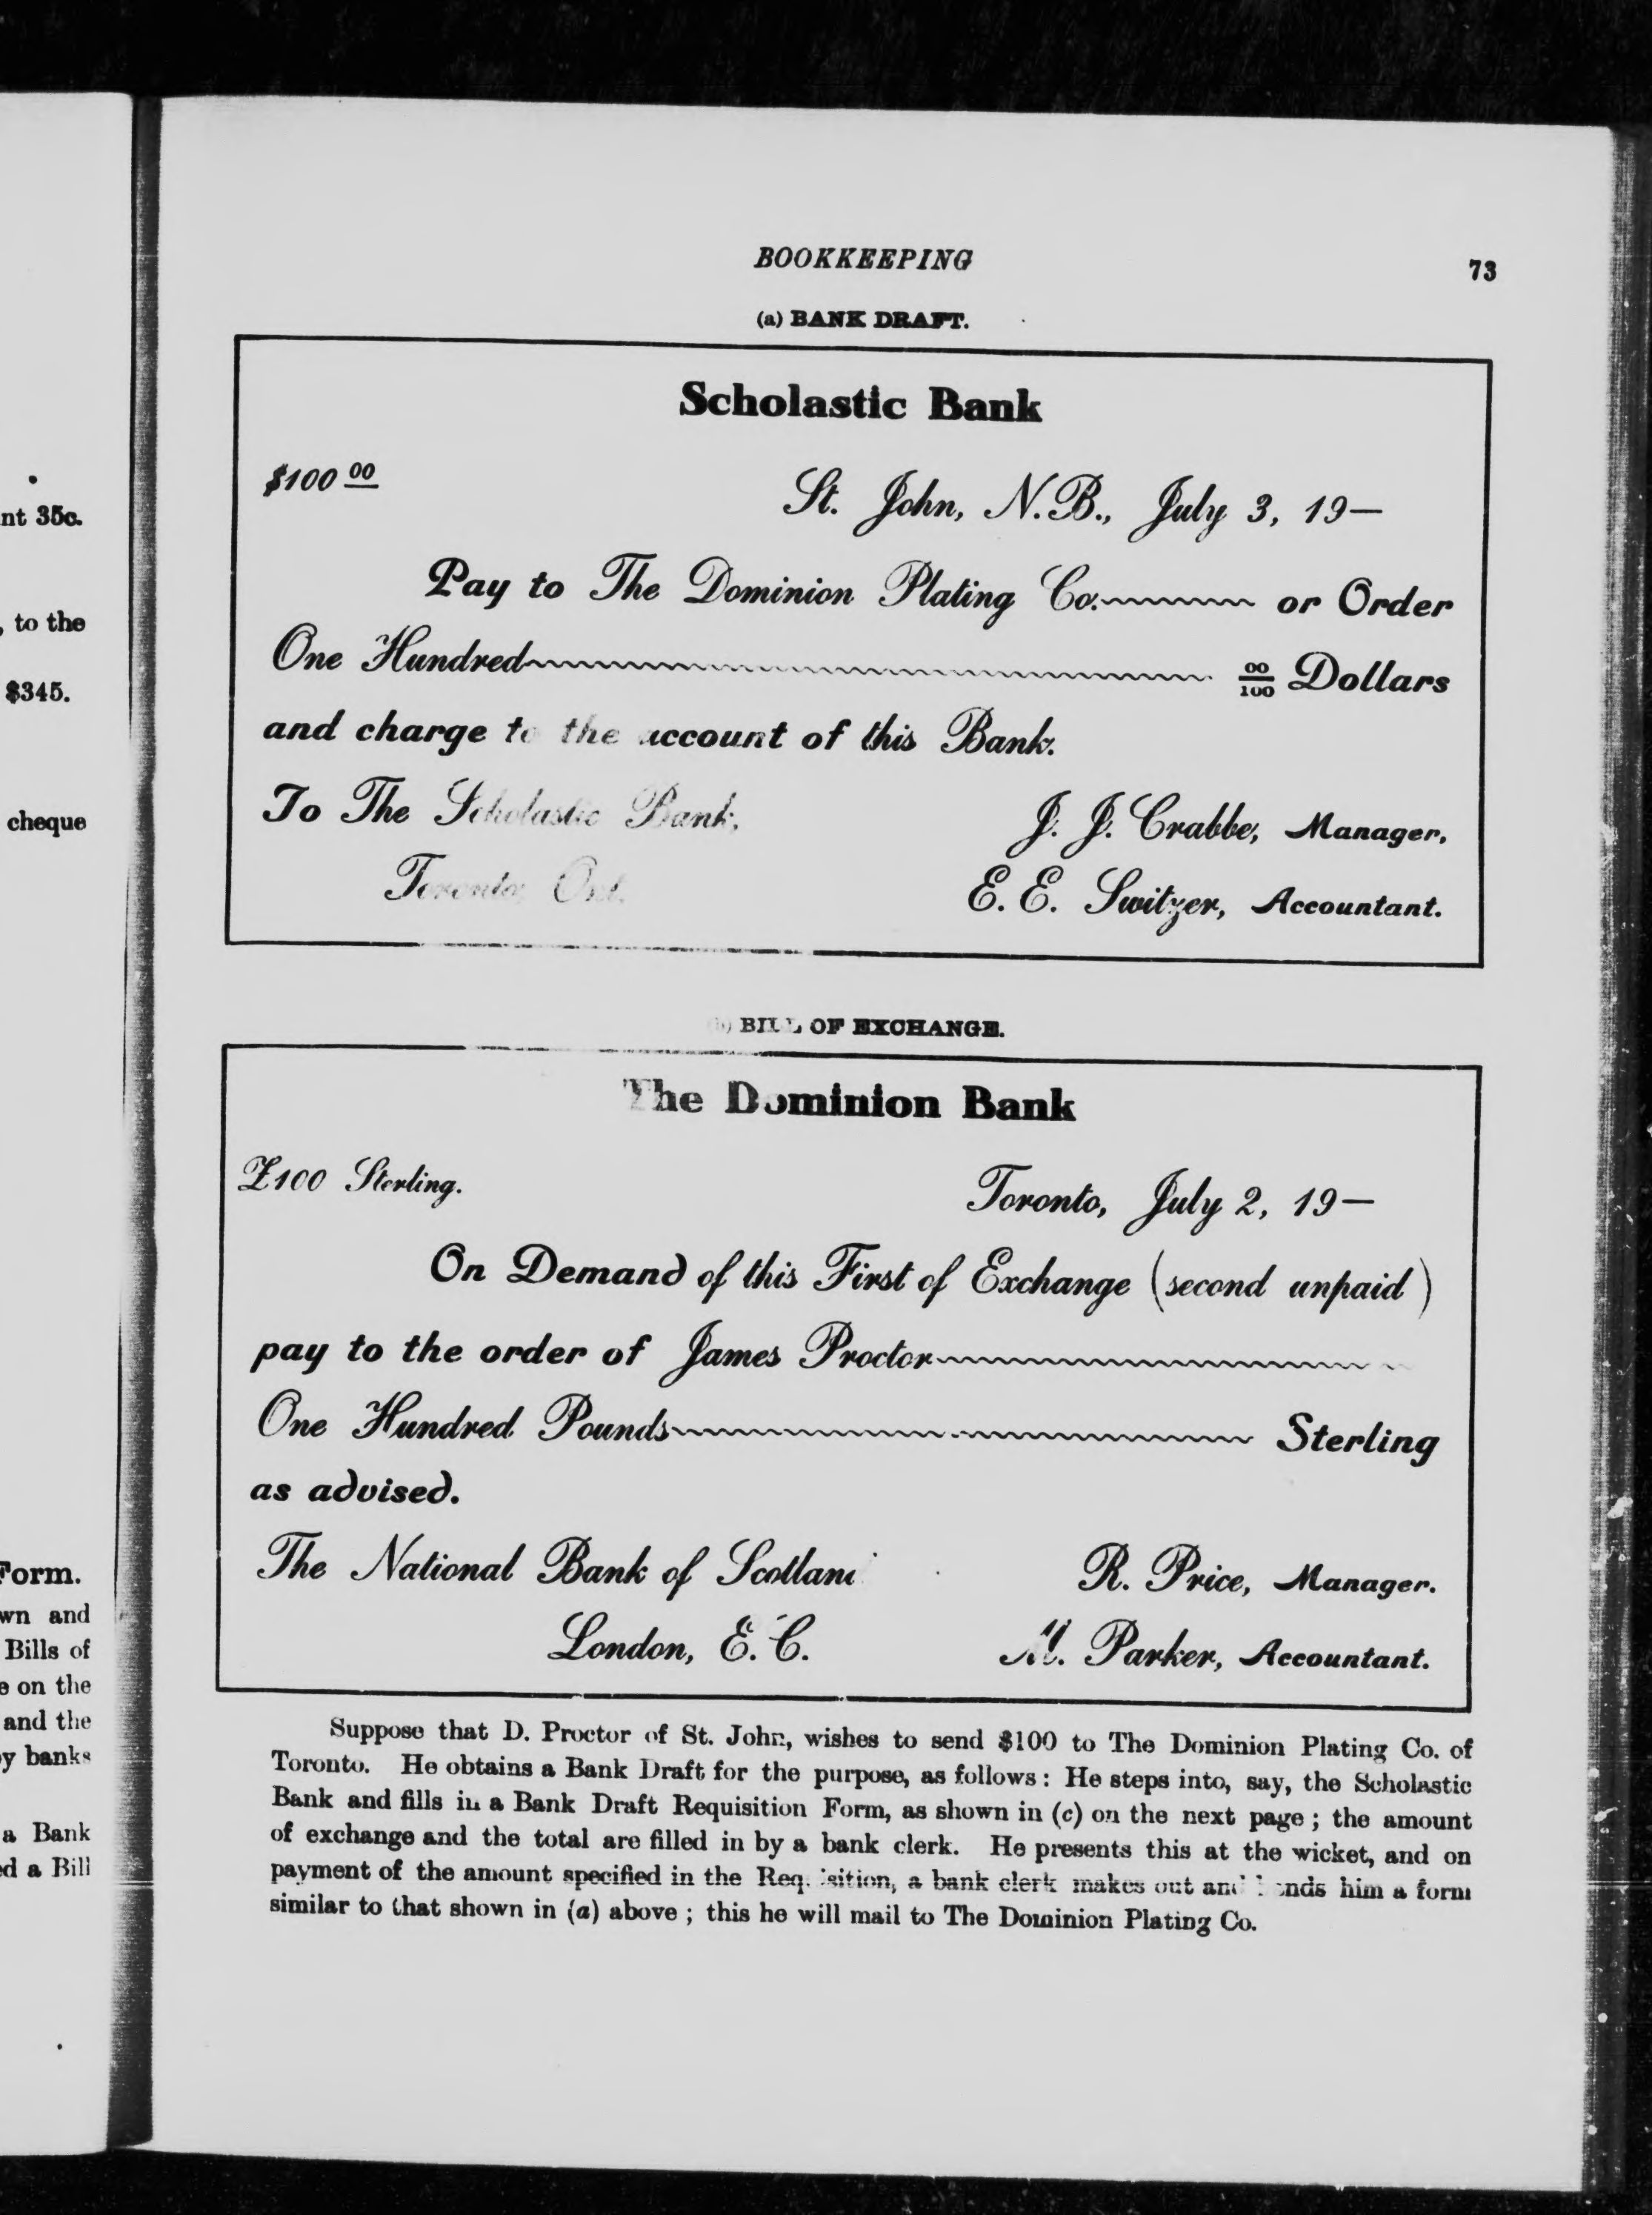 nt 35c.
, to the
$345.
cheque
Form.
wn and
Bills of
e on the
and the
y banks
a Bank
d a Bill
BOOKKEEPING
73
(a) BANK DRAFT.
Scholastic Bank
$100 00
St. John, N.B., July 3, 19—
Pay to The Dominion Plating Co. or Order
One Hundred 00/100 Dollars
and charge to the account of this Bank.
To The Scholastic Bank,
J. J. Crabbe, Manager,
Toronto, Ont.
E. E. Switzer, Accountant.
BILL OF EXCHANGE.
The Dominion Bank
£100 Sterling.
Toronto, July 2, 19—
On Demand of this First of Exchange (second unpaid)
pay to the order of James Proctor
One Hundred Pounds Sterling
as advised.
The National Bank of Scotland
R. Price, Manager.
London, E. C.
Parker, Accountant.
Suppose that D. Proctor of St. John, wishes to send $100 to The Dominion Plating Co. of
Toronto. He obtains a Bank Draft for the purpose, as follows: He steps into, say, the Scholastic
Bank and fills in a Bank Draft Requisition Form, as shown in (c) on the next page; the amount
of exchange and the total are filled in by a bank clerk. He presents this at the wicket, and on
payment of the amount specified in the Requisition, a bank clerk makes out and hands him a form
similar to that shown in (a) above; this he will mail to The Dominion Plating Co.